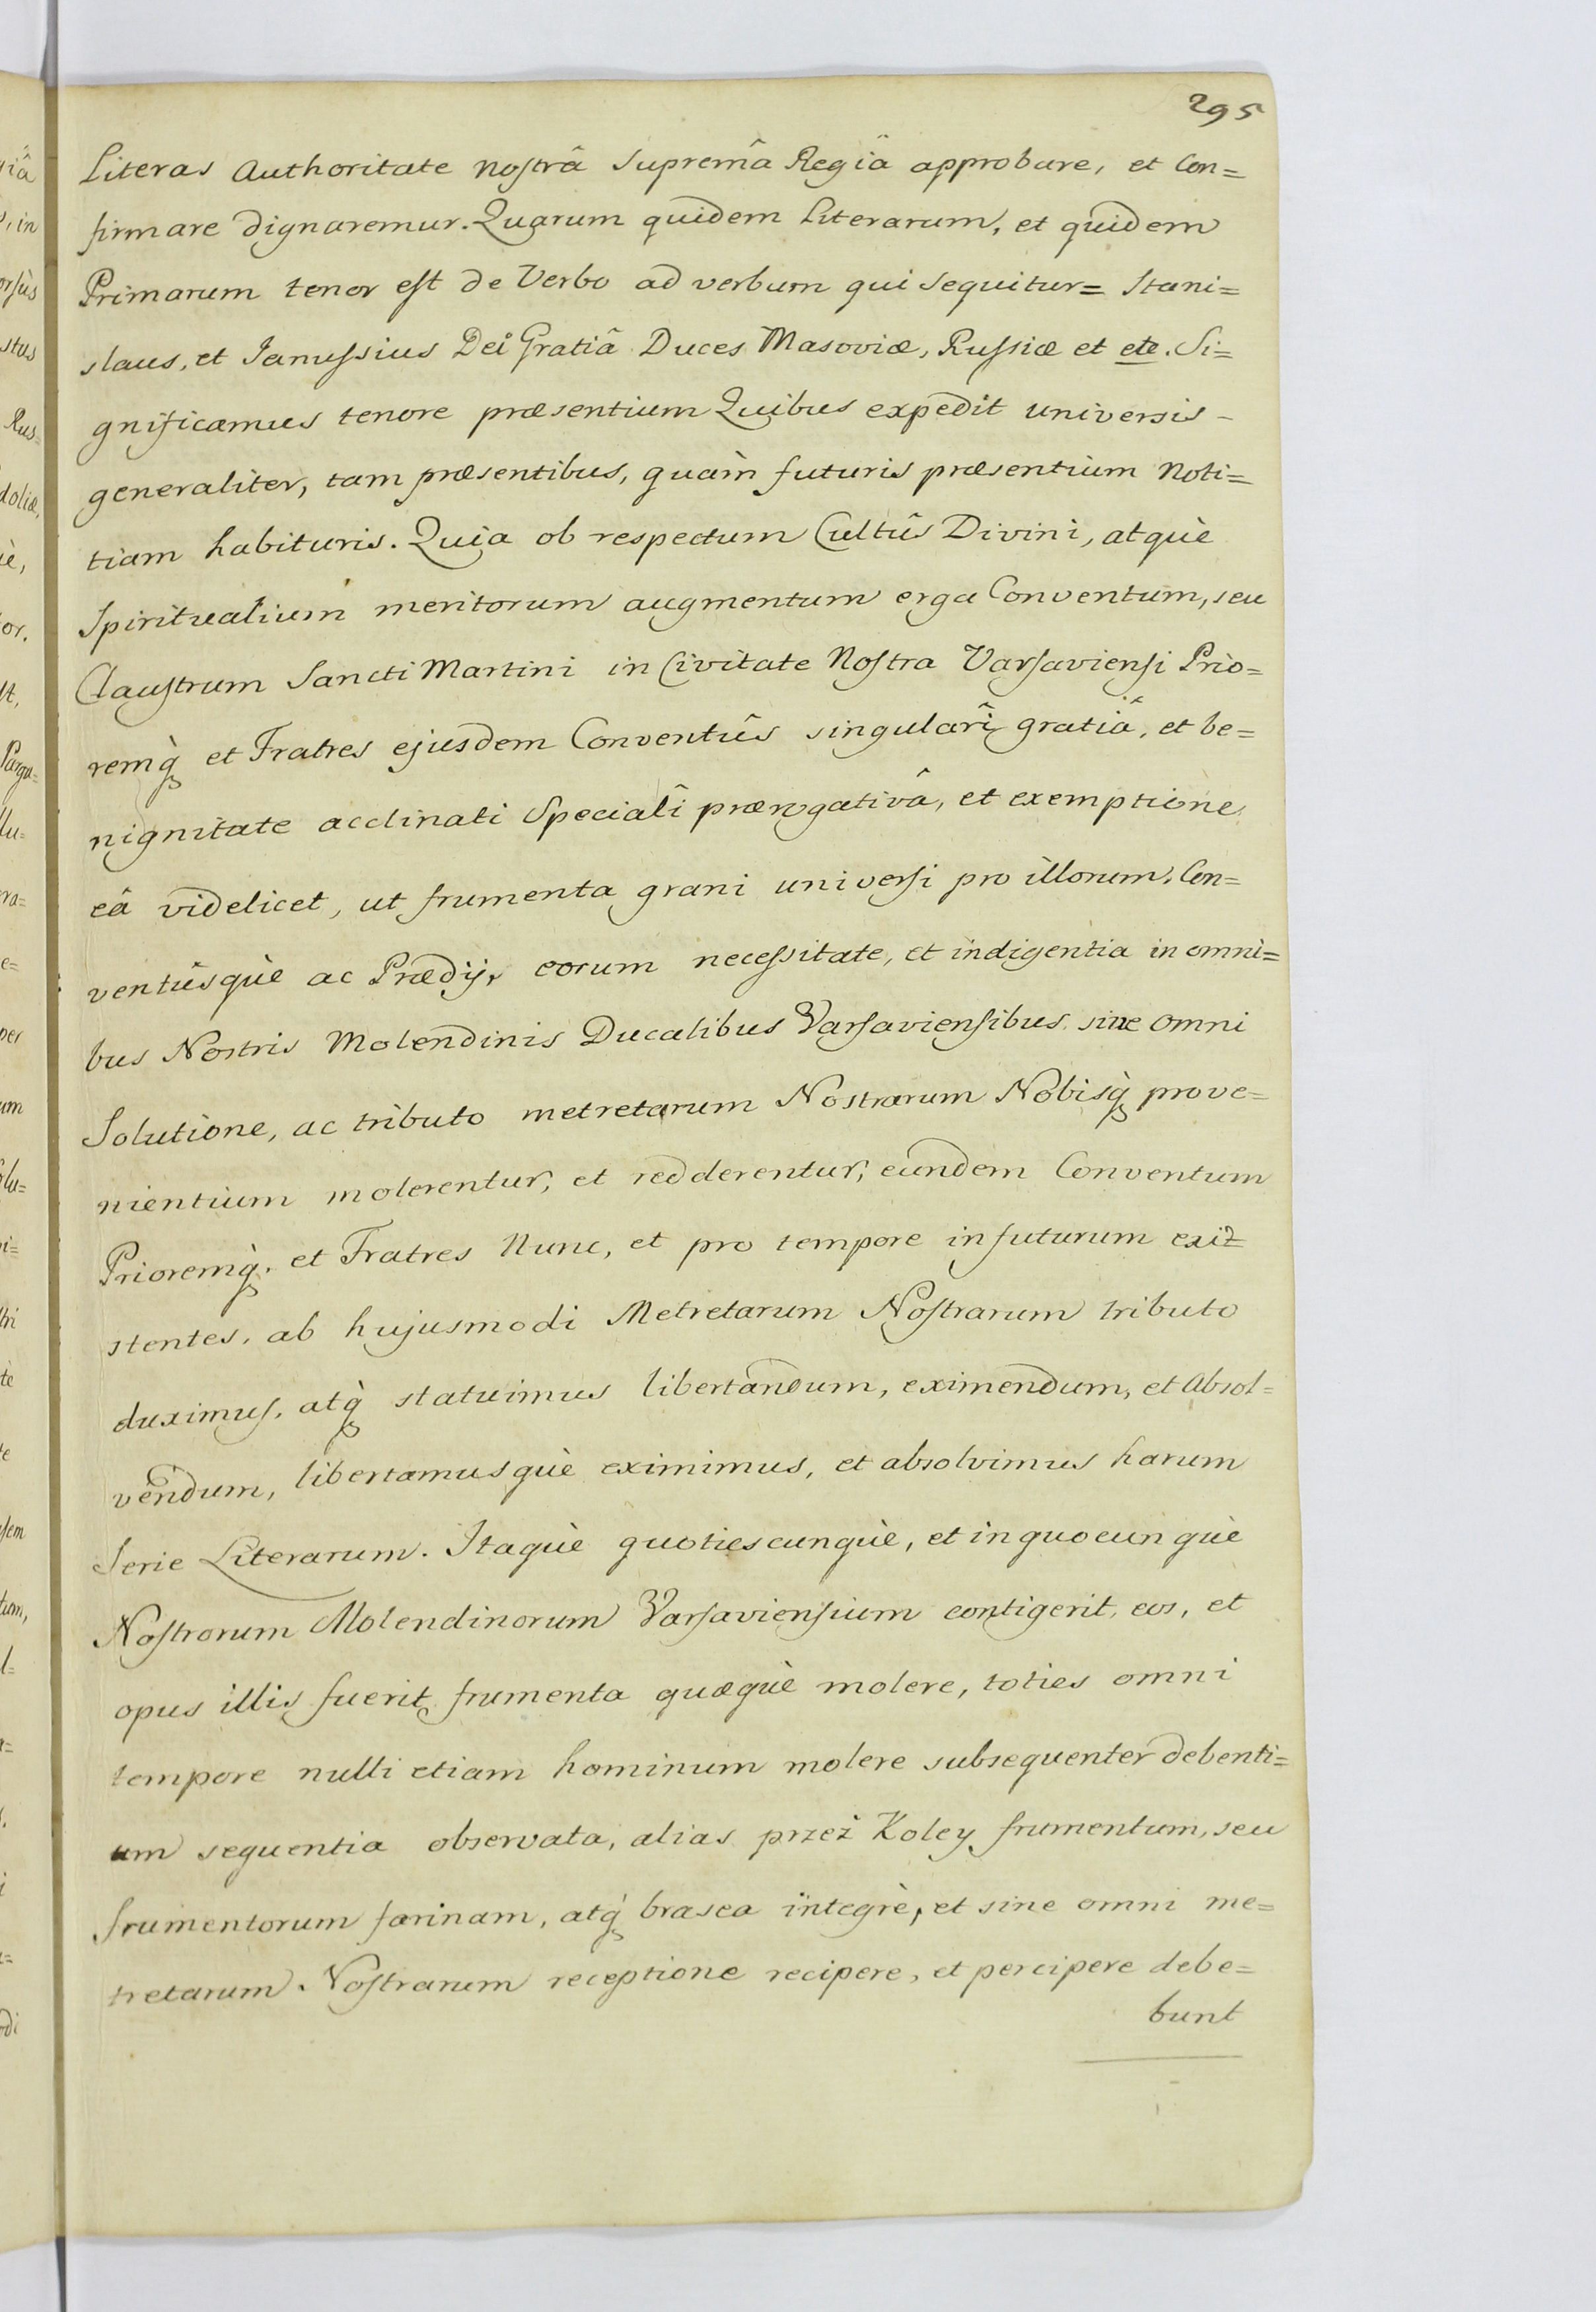 295
Literas Authoritate Nostrâ Supremâ Regiâ approbare, et Con=
firmare dignaremur. Quarum quidem Literarum, et quidem
Primarum tenor est de Verbo ad verbum qui sequitur= Stani=
slaus, et Janussius Dei Gratiâ Duces Masoviæ, Russiæ et etc. Si=
gnificamus tenore præsentium Quibus expedit universis-
generaliter, tam præsentibus, quàm futuris præsentium Noti=
tiam habituris. Quia ob respectum Cultûs Divini, atquè
Spiritualium meritorum augmentum erga Conventum, seu
Claustrum Sancti Martini in Civitate Nostra Varsaviensi Prio=
remq̀ et Fratres ejusdem Conventûs singulari gratiâ, et be=
nignitate acclinati Speciali prærogativâ, et exemptione
eâ videlicet, ut frumenta grani universi pro illorum Con=
ventûsquè ac Prædijs eorum necessitate, et indigentia in omni=
bus Nostris Molendinis Ducalibus Varsaviensibus sine omni
Solutione, ac tributo metretarum Nostrarum Nobisq̀ prove=
nientium molerentur, et redderentur, eundem Conventum
Prioremq̀ et Fratres Nunc, et pro tempore in futurum exi=
stentes, ab hujusmodi Metretarum Nostrarum tributo
duximus, atq̀ statuimus libertandum, eximendum, et Absol=
vendum, libertamusquè eximimus, et absolvimus harum
Serie Literarum. Itaquè quotiescunquè, et in quocunquè
Nostrorum Molendinorum Varsaviensium contigerit, eos, et
opus illis fuerit frumenta quæquè molere, toties omni
tempore nulli etiam hominum molere subsequenter debenti=
um sequentia observata, alias przez Koley frumentum, seu
frumentorum farinam, atq̀ brasea integrè, et sine omni me=
tretarum Nostrarum receptione recipere, et percipere debe=
bunt